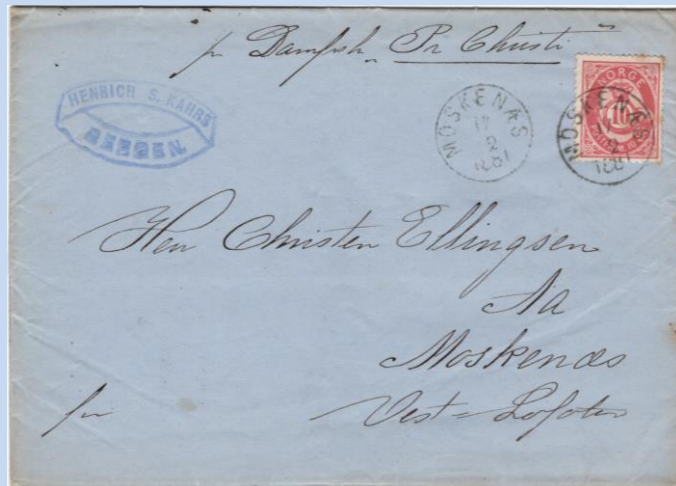 pr Dampsk „Pr Christi“
HENRICH S. KAHRS
BERGEN.
MOSKENÆS
17
2
1881
NORGE
10
MOSKENÆS
17
2
188
Herr Christen Ellingsen
Aa
Moskenæs
Vest=Lofoten